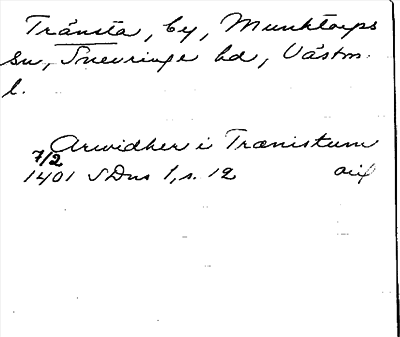 Tränsta, by, Munktorps
sn, Snevringe hd, Västm.
l.
Arwidher i Trænistum
7/2
1401 SDns 1, s. 12 avskr